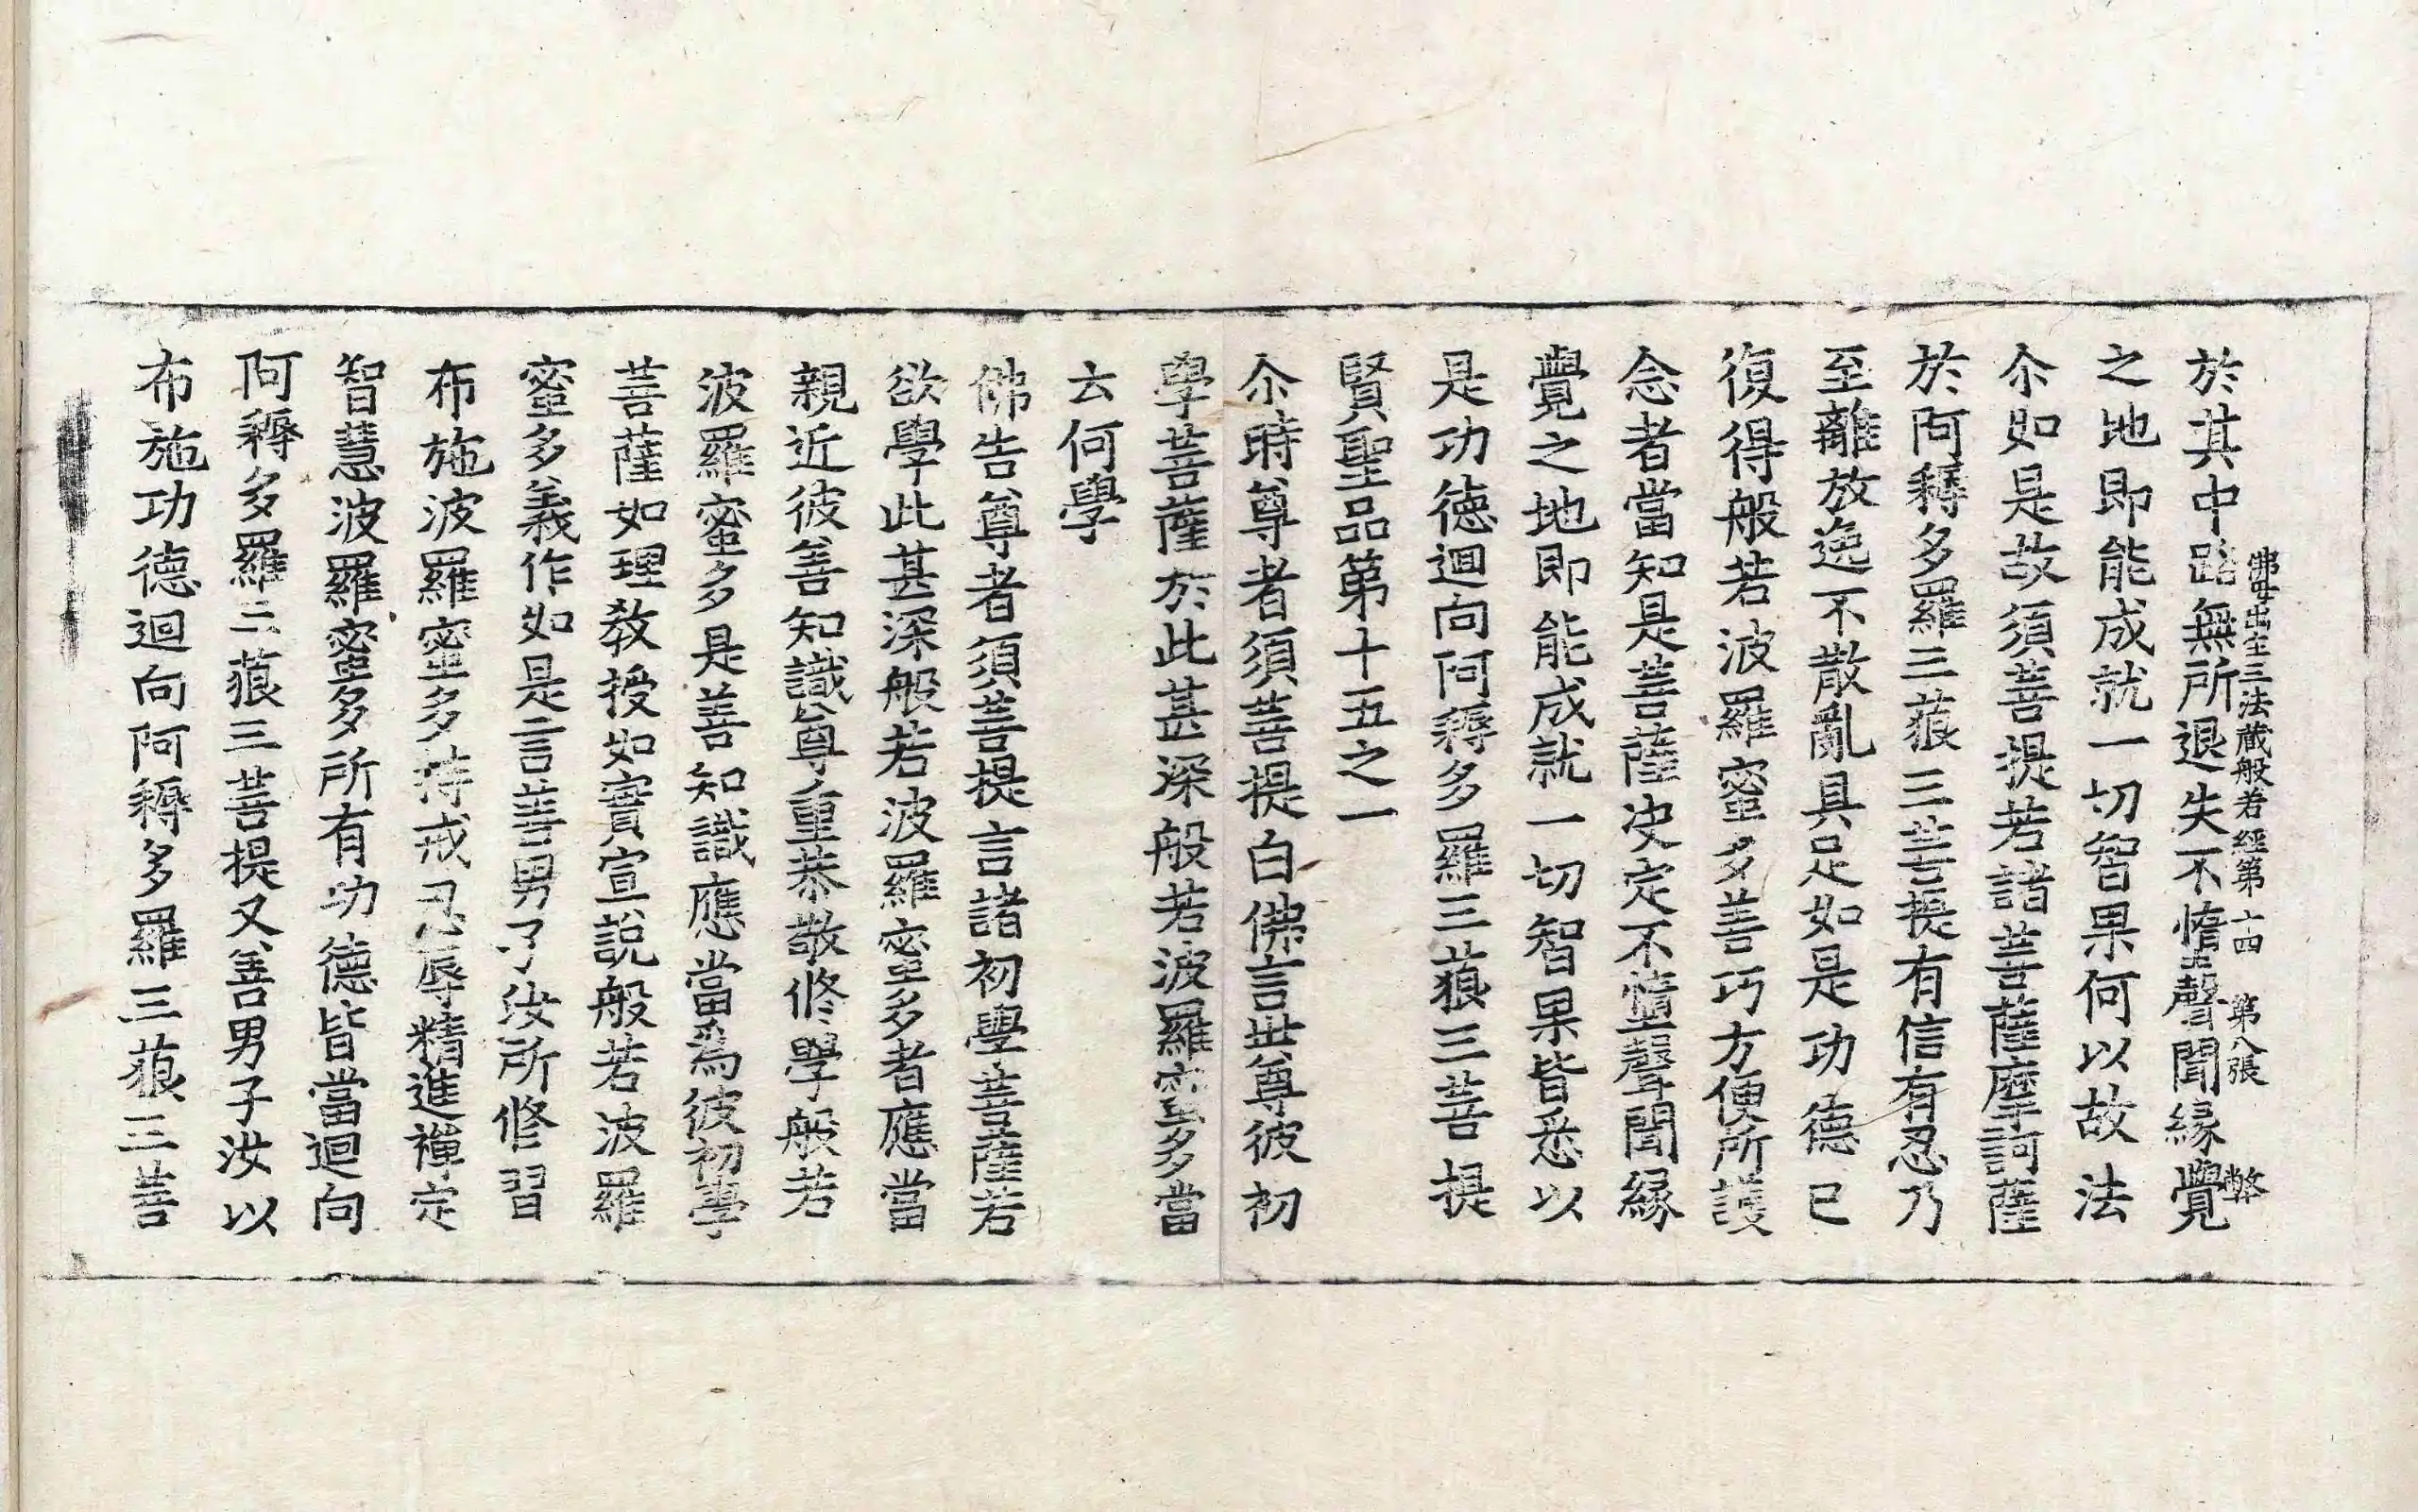 佛母出生三法藏般若經第十四 第八張 弊
於其中路無所退失不墮聲聞縁覺
之地即能成就一切智果何以故法
尒如是故須菩提若諸菩薩摩訶薩
於阿耨多羅三藐三菩提有信有忍乃
至離放逸不散亂具足如是功德已
復得般若波羅蜜多善巧方便所護
念者當知是菩薩決定不墮聲聞縁
覺之地即能成就一切智果皆悉以
是功德迴向阿耨多羅三藐三菩提
賢聖品第十五之一
尒時尊者須菩提白佛言世尊彼初
學菩薩於此甚深般若波羅蜜多當
云何學
佛告尊者須菩提言諸初學菩薩若
欲學此甚深般若波羅蜜多者應當
親近彼善知識尊重恭敬修學般若
波羅蜜多是善知識應當為彼初學
菩薩如理教授如實宣說般若波羅
蜜多義作如是言善男子汝所修習
布施波羅蜜多持戒忍辱精進禪定
智慧波羅蜜多所有功德皆當迴向
阿耨多羅三藐三菩提又善男子汝以
布施功德迴向阿耨多羅三藐三菩